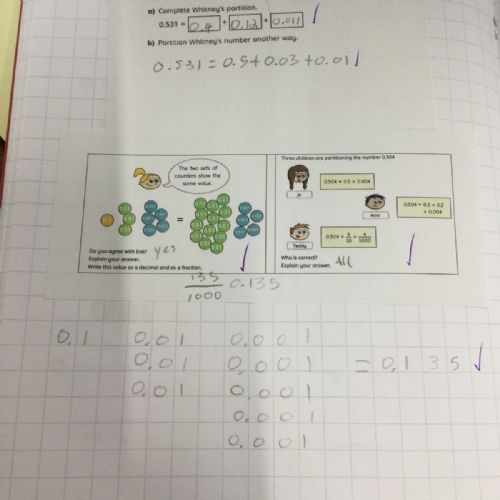 a) Complete Whitney's partition.
0.531 = 0.4 + 0.12 + 0.011
b) Partition Whitney's number another way.
0.531 = 0.5 + 0.03 + 0.01
The two sets of
counters show the
same value.
=
Do you agree with Eva? yes
Explain your answer.
Write this value as a decimal and as a fraction.
135
1000 0.135
Three children are partitioning the number 0.504
0.504 = 0.5 + 0.004
Jo
0.504 = 0.3 + 0.2
+ 0.004
Amir
0.504 = 5/10 + 4/1000
Teddy
Who is correct?
Explain your answer. All
0.1 0.01 0.001
0.01 0.001 = 0.135
0.01 0.001
0.001
0.001